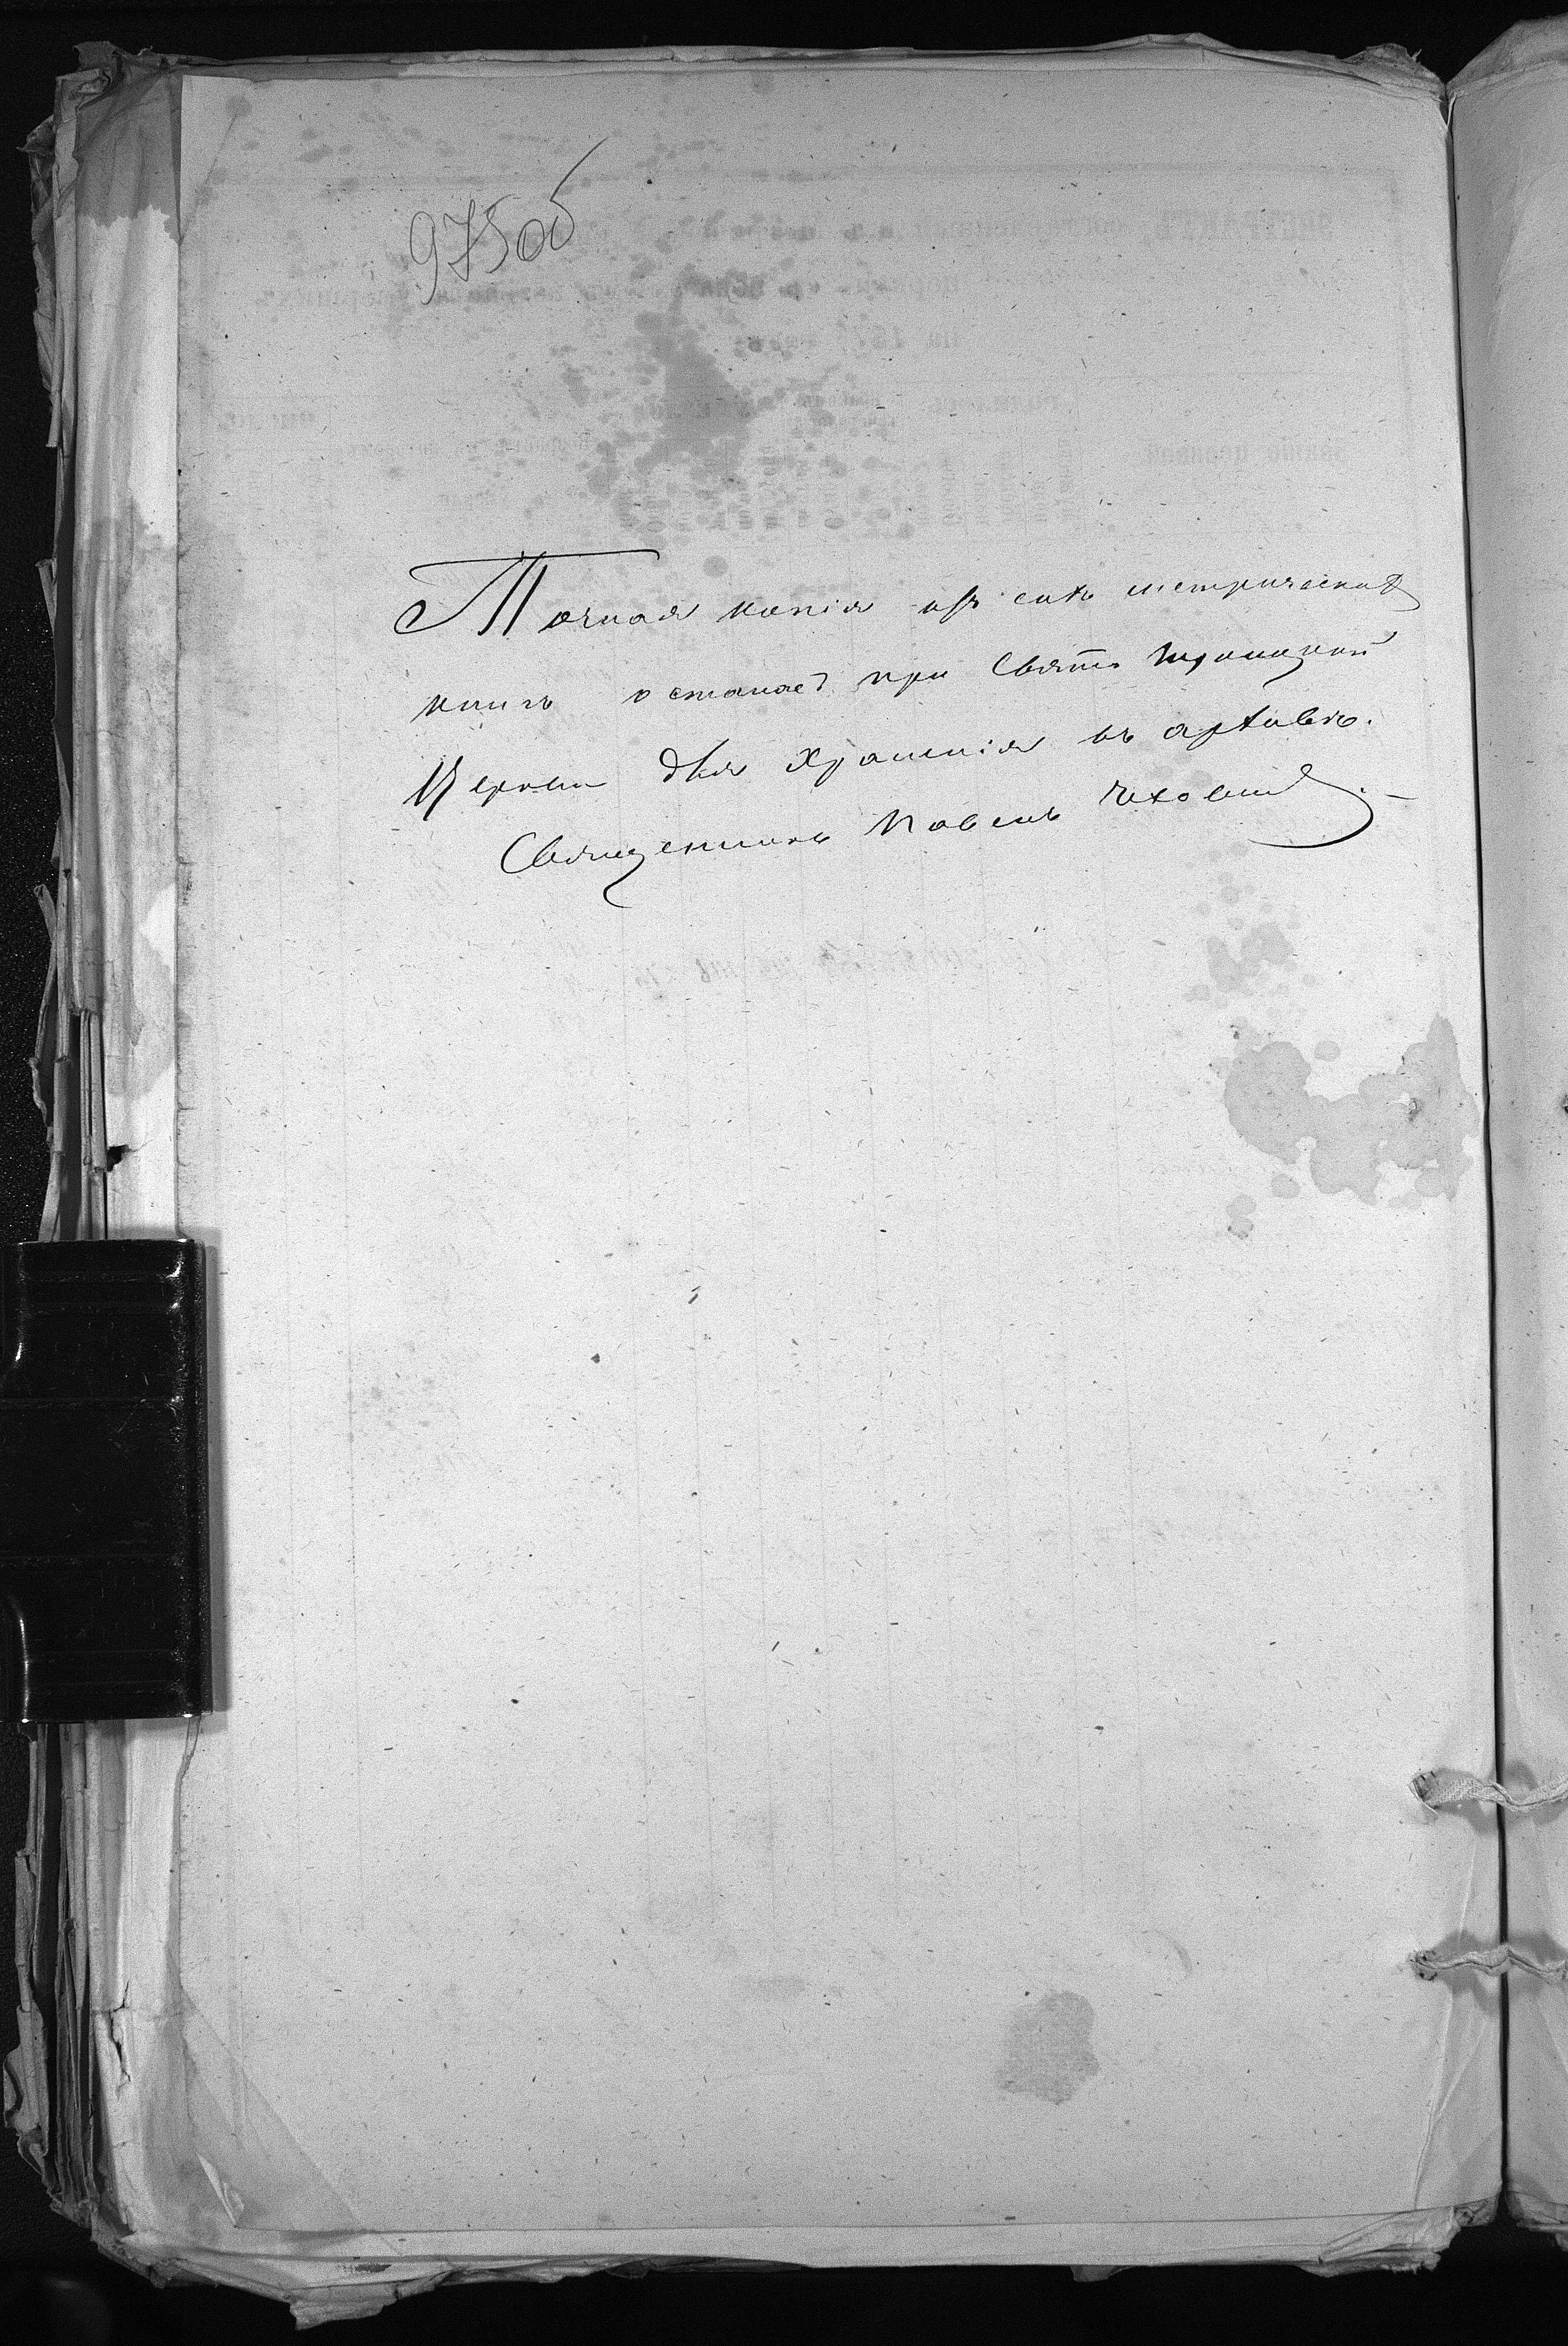 975об
Точная копія изъ сихъ метрическихъ
книгъ остана при Свято Троицкой
Церкви для храненія въ архивѣ.
Священникъ Павелъ